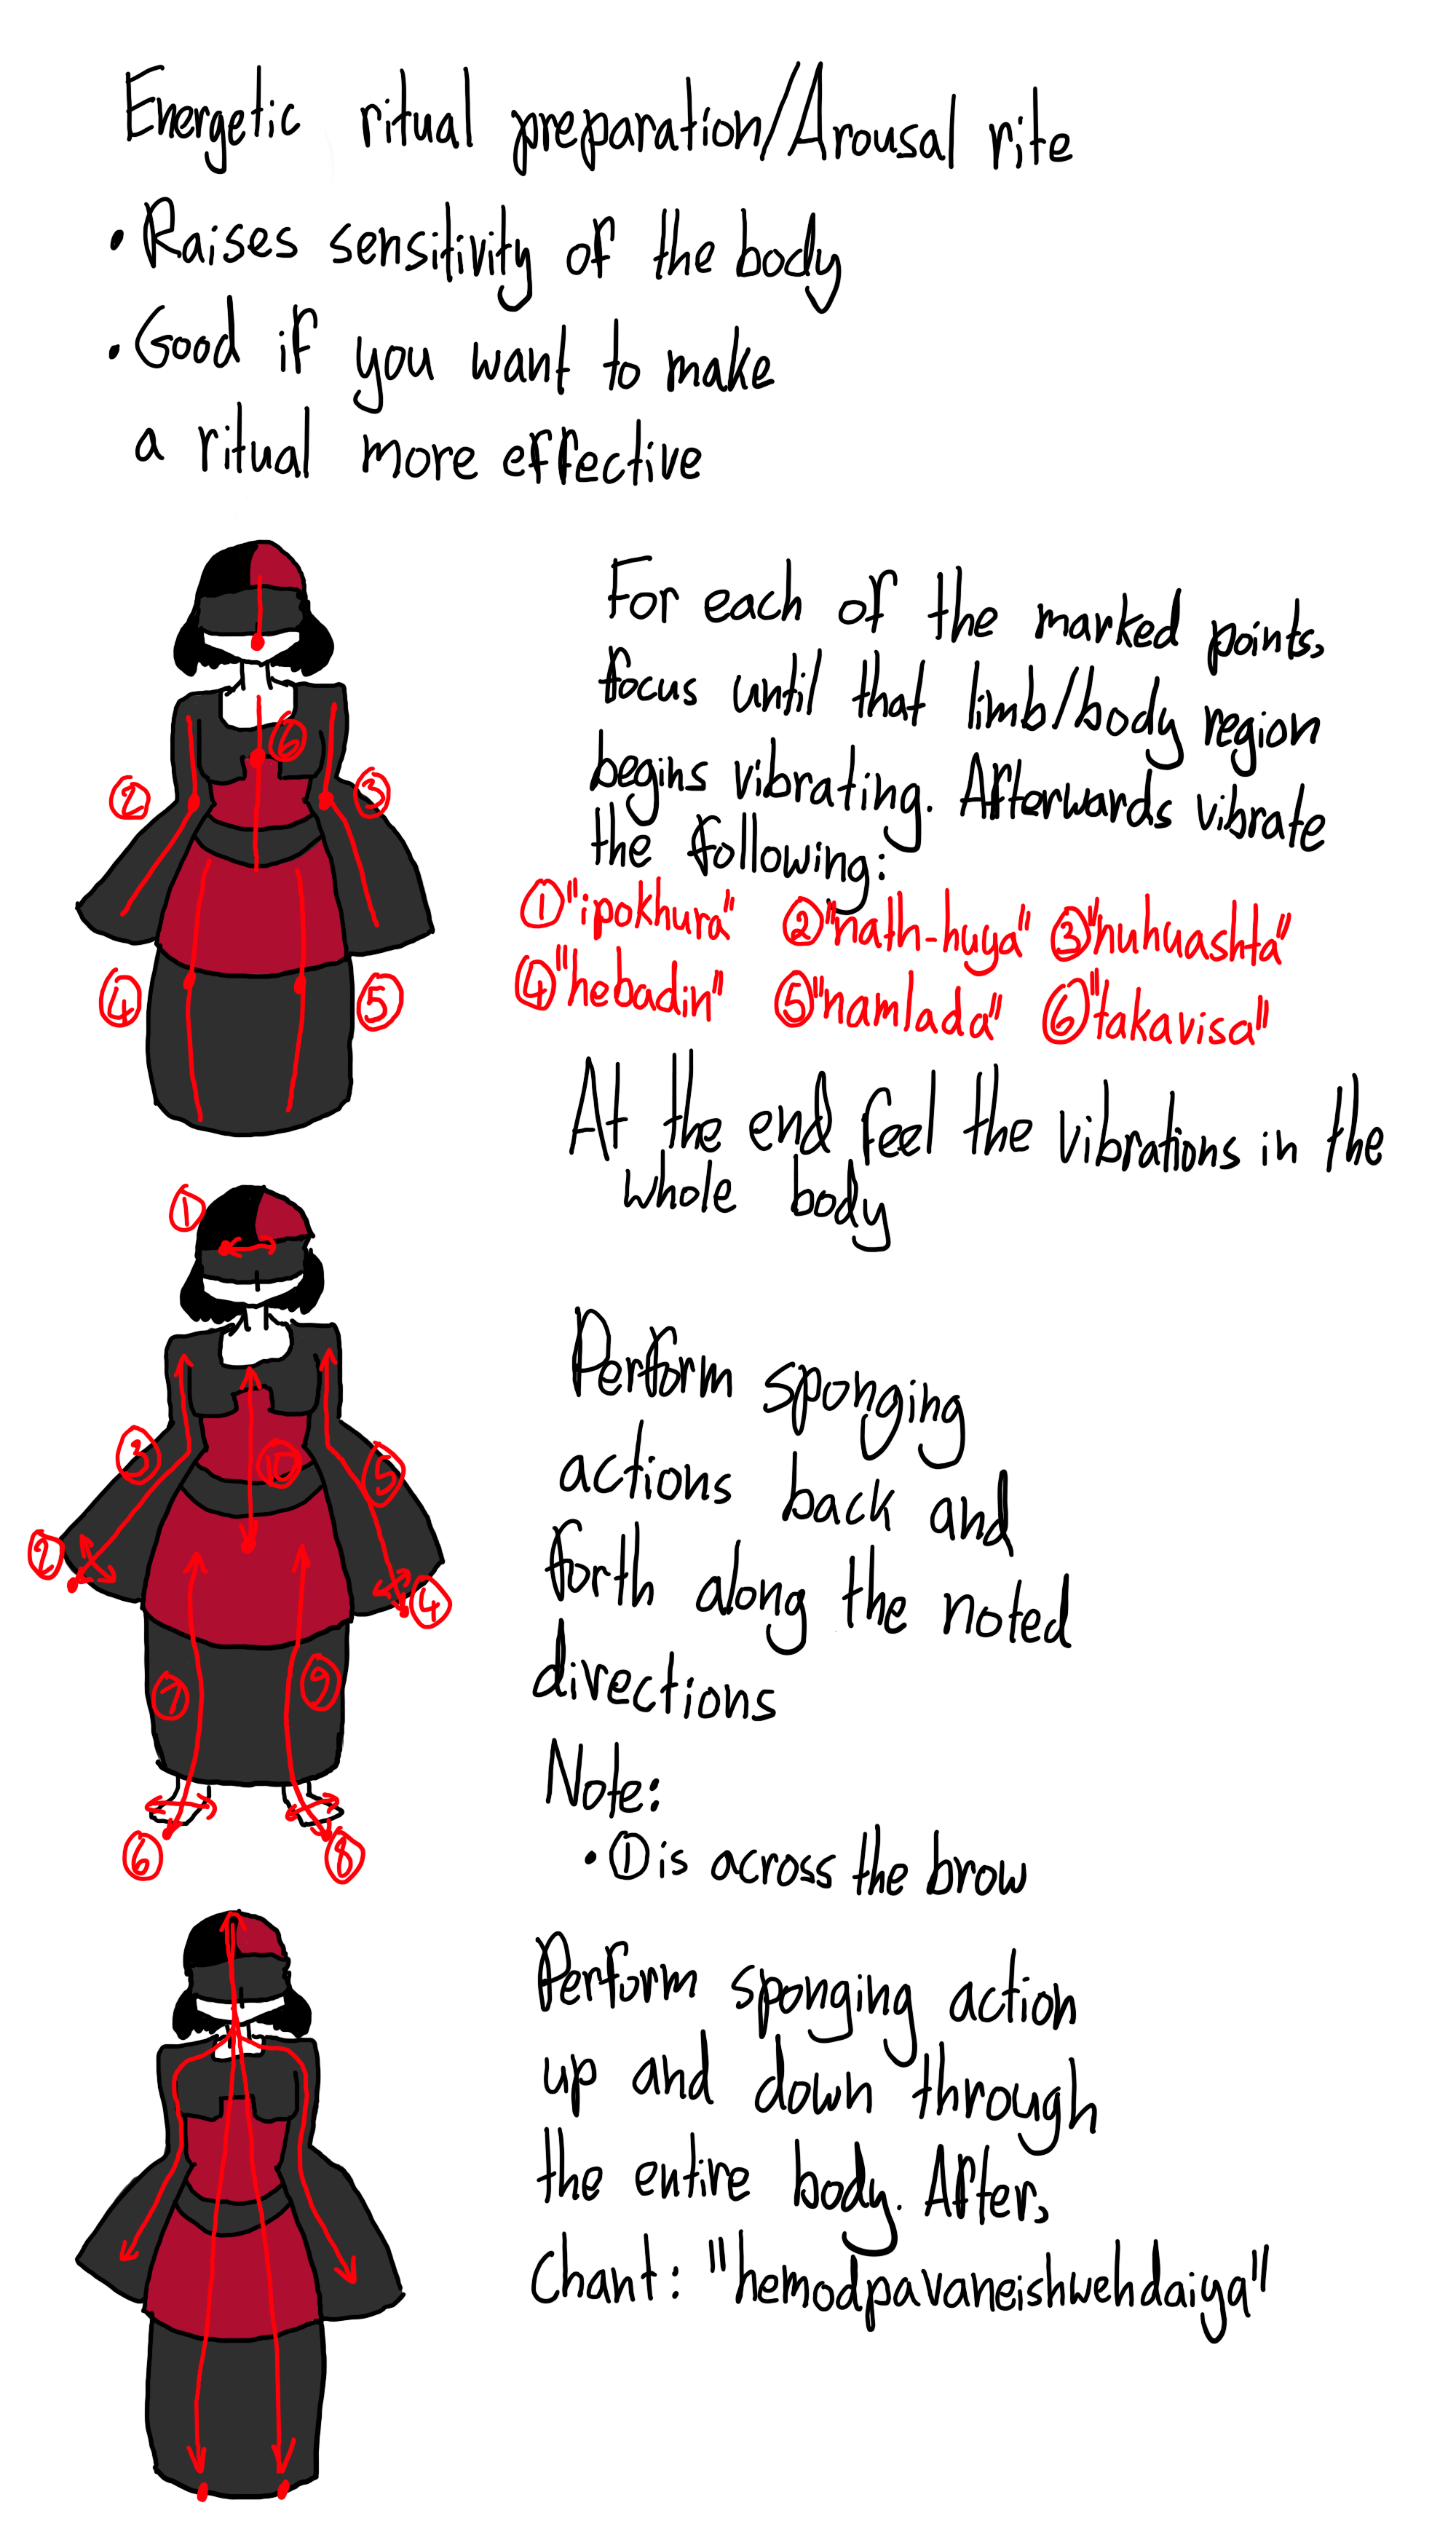 Energetic ritual preparation/Arousal rite
• Raises sensitivity of the body
• Good if you want to make
a ritual more effective
For each of the marked points,
focus until that limb/body region
begins vibrating. Afterwards vibrate
the following:
① "ipokhura" ② "nath-huya" ③ "huhuashta"
④ "hebadin" ⑤ "namlada" ⑥ "takavisa"
At the end feel the vibrations in the
whole body
⑥
② ③
④ ⑤
Perform sponging
actions back and
forth along the noted
directions
Note:
• ① is across the brow
①
③ ⑩ ⑤
② ④
⑦ ⑨
⑥ ⑧
Perform sponging action
up and down through
the entire body. After,
chant: "hemodpavaneishwehdaiya"